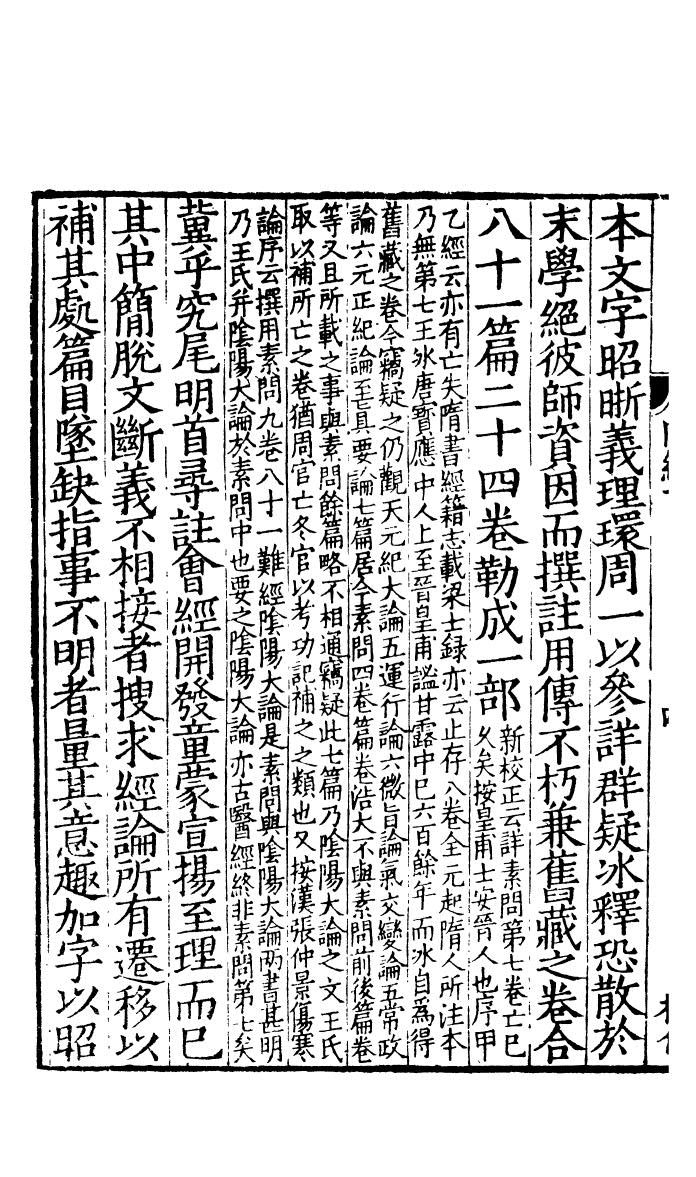 本文字昭晣義理環周一以參詳群疑冰釋恐散於
末學絕彼師資因而撰註用傳不朽兼舊藏之卷合
八十一篇二十四卷勒成一部
新校正云詳素問第七卷亡已
乆矣按皇甫士安晉人也序甲
乙經云亦有亡失隋書經籍志載梁士録亦云止存八卷全元起隋人所注本
乃無第七王冰唐寶應中人上至晉皇甫謐甘露中已六百餘年而冰自爲得
舊藏之卷今竊疑之仍觀天元紀大論五運行論六微旨論氣交變論五常政
論六元正紀論至真要論七篇居今素問四卷篇卷浩大不與素問前後篇卷
等又且所載之事與素問餘篇略不相通竊疑此七篇乃陰陽大論之文王氏
取以補所亡之卷猶周官亡冬官以考功記補之之類也又按漢張仲景傷寒
論序云撰用素問九卷八十一難經陰陽大論是素問與陰陽大論兩書甚明
乃王氏并陰陽大論於素問中也要之陰陽大論亦古醫經終非素問第七矣
冀乎究尾明首尋註會經開發童蒙宣揚至理而已
其中簡脫文斷義不相接者搜求經論所有遷移以
補其處篇目墜缺指事不明者量其意趣加字以昭